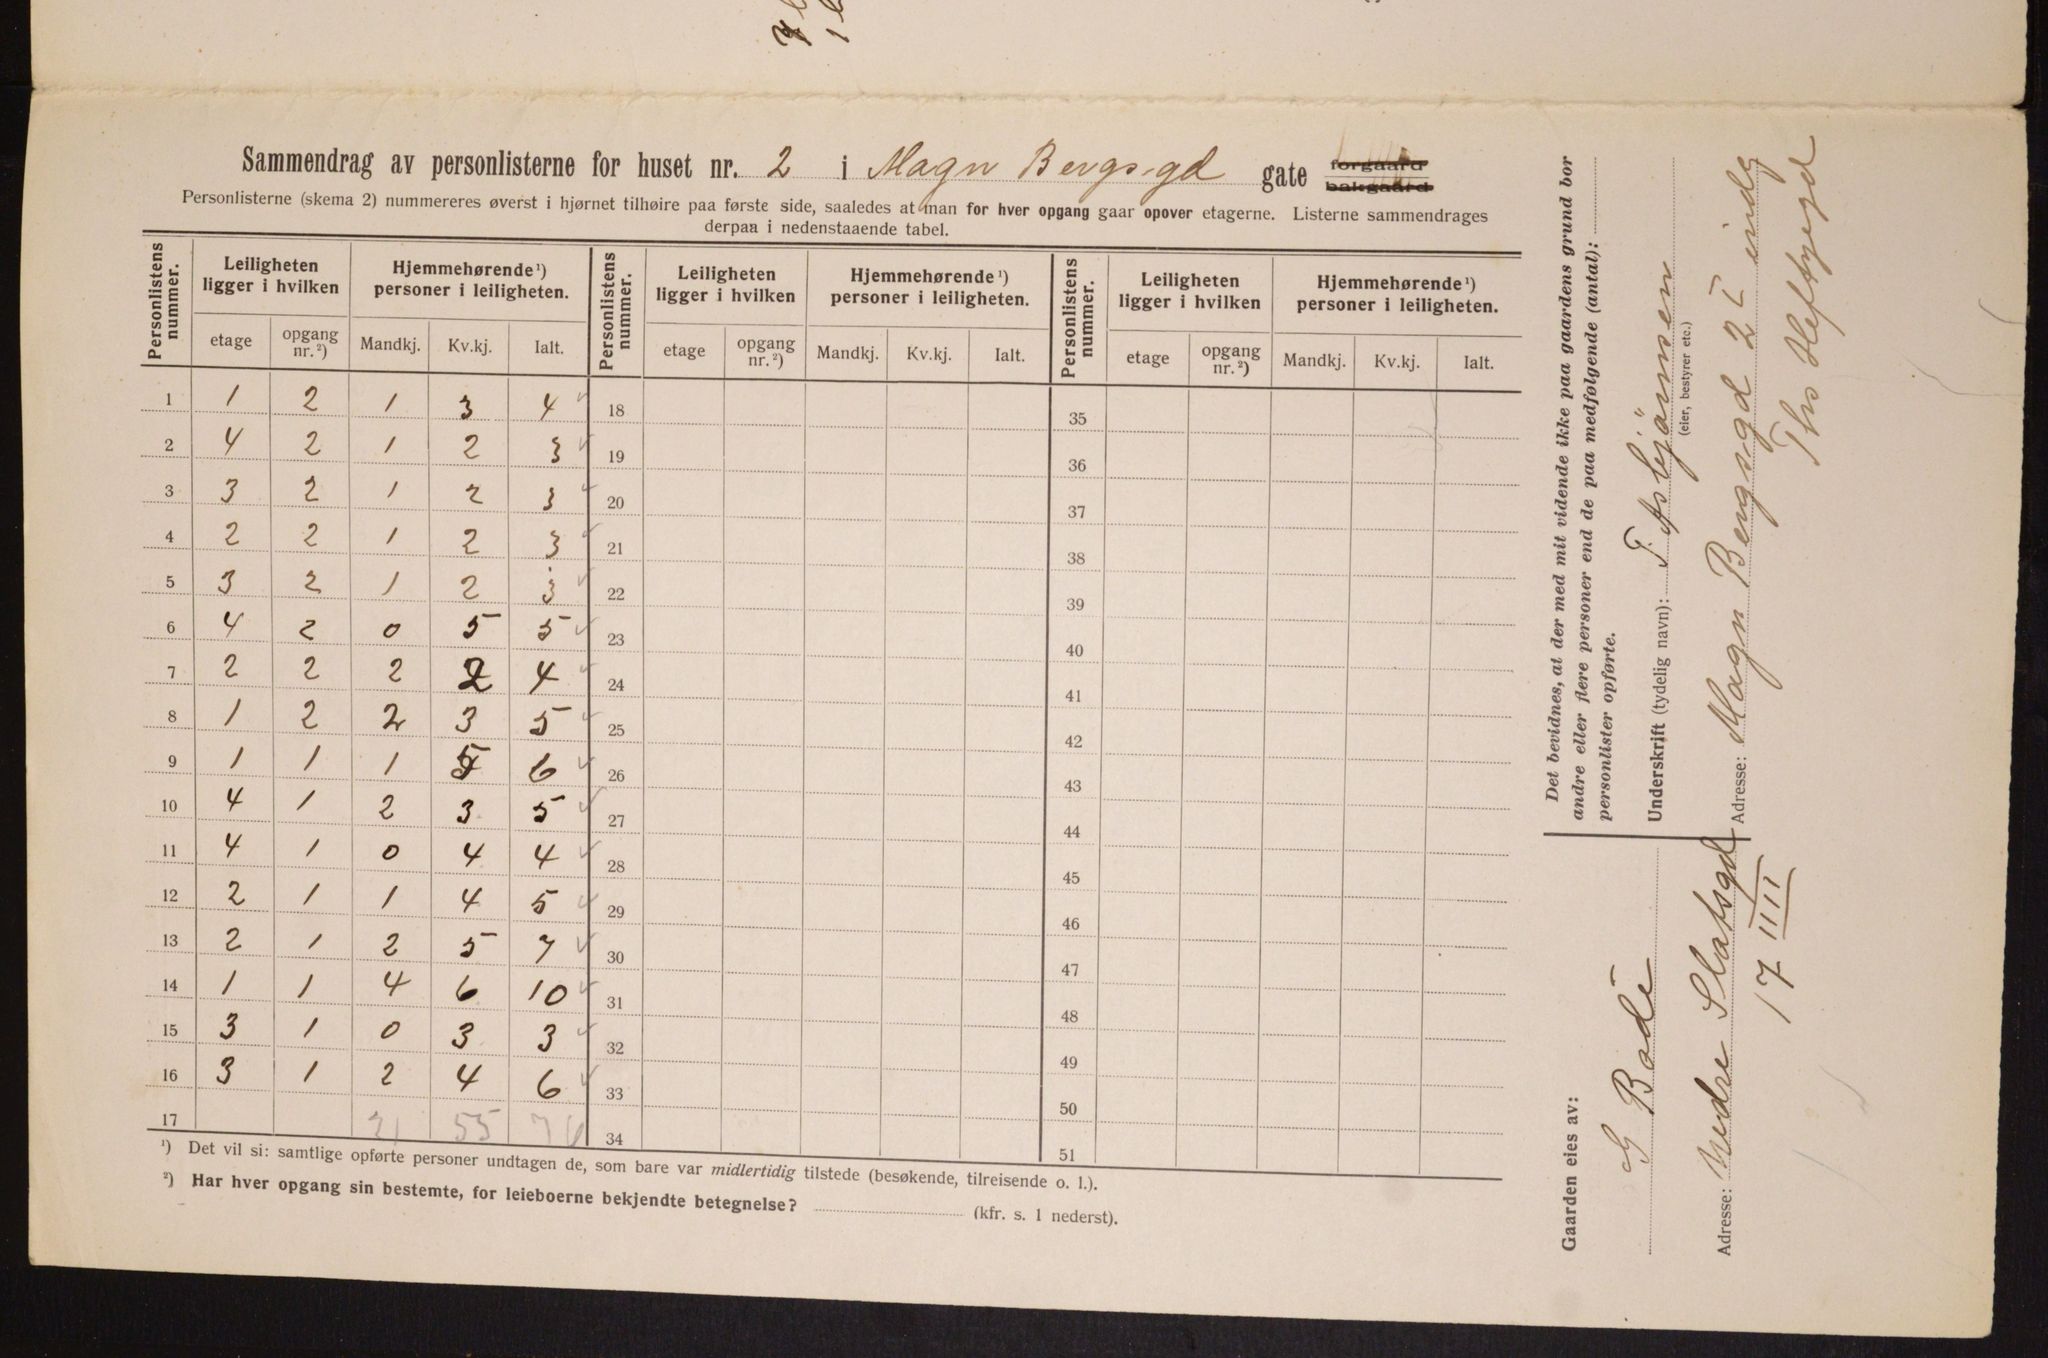 Sammendrag av personlisterne for huset nr. 2 i Magn Bergs-gd gate forgaard bakgaard
Personlisterne (skema 2) nummereres øverst i hjørnet tilhøire paa første side, saaledes at man for hver opgang gaar opover etagerne. Listerne sammendrages
derpaa i nedenstaaende tabel.
Personlistens nummer. Leiligheten ligger i hvilken Hjemmehørende ¹) personer i leiligheten. Personlistens nummer. Leiligheten ligger i hvilken Hjemmehørende ¹) personer i leiligheten. Personlistens nummer. Leiligheten ligger i hvilken Hjemmehørende ¹) personer i leiligheten.
etage opgang nr. ²) Mandkj. Kv.kj. Ialt. etage opgang nr. ²) Mandkj. Kv.kj. Ialt. etage opgang nr. ²) Mandkj. Kv.kj. Ialt.
1 1 2 1 3 4 18 35
2 4 2 1 2 3 19 36
3 3 2 1 2 3 20 37
4 2 2 1 2 3 21 38
5 3 2 1 2 3 22 39
6 4 2 0 5 5 23 40
7 2 2 2 2 4 24 41
8 1 2 2 3 5 25 42
9 1 1 1 5 6 26 43
10 4 1 2 3 5 27 44
11 4 1 0 4 4 28 45
12 2 1 1 4 5 29 46
13 2 1 2 5 7 30 47
14 1 1 4 6 10 31 48
15 3 1 0 3 3 32 49
16 3 1 2 4 6 33 50
17 21 55 76 34 51
¹) Det vil si: samtlige opførte personer undtagen de, som bare var midlertidig tilstede (besøkende, tilreisende o. l.).
²) Har hver opgang sin bestemte, for leieboerne bekjendte betegnelse? (kfr. s. 1 nederst).
Det bevidnes, at der med mit vidende ikke paa gaardens grund bor
andre eller flere personer end de paa medfølgende (antal):
personlister opførte.
Underskrift (tydelig navn): T. Asbjörnsen
(eier, bestyrer etc.)
Adresse: Magn Bergsgd 2 I indg
Ths Heftyegd
Gaarden eies av:
G Bode
Adresse: Nedre Slotsgd
17 IIII